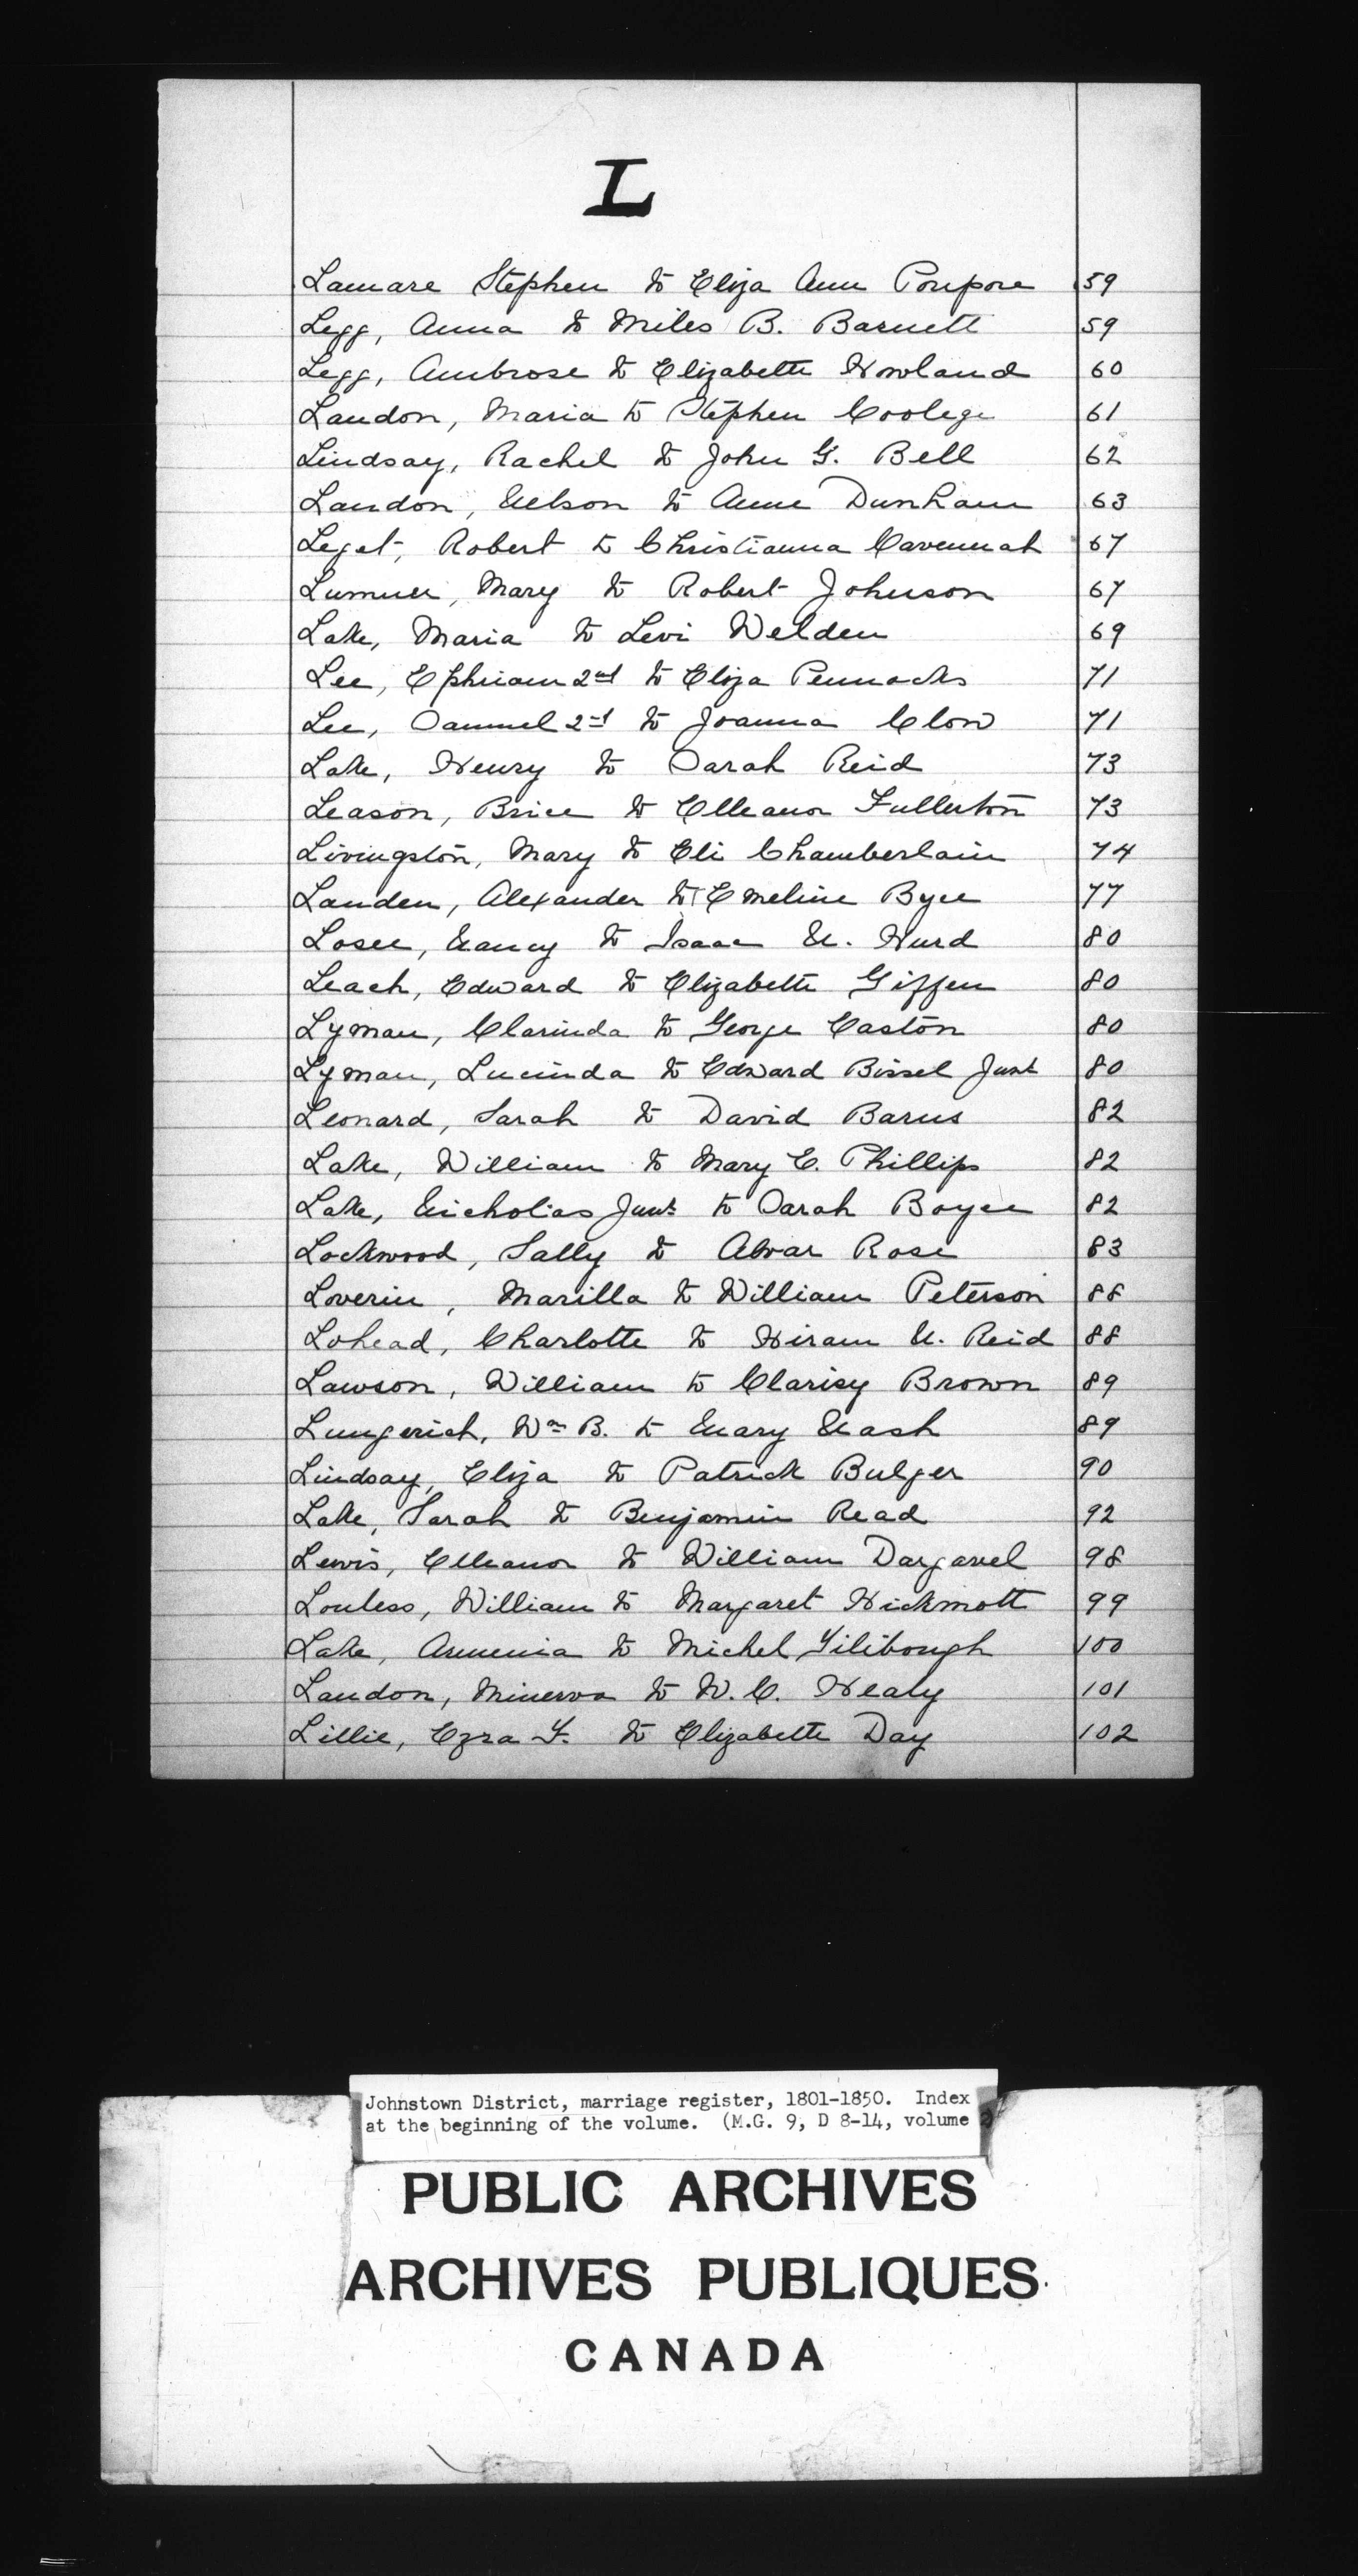 L
Lamare Stephen to Eliza Ann Poupore 59
Legg, Anna to Miles B. Barnett 59
Legg, Ambrose to Elizabeth Howland 60
Landon, Maria to Stephen Coolege 61
Lindsay, Rachel to John G. Bell 62
Landon, Nelson to Anne Dunham 63
Leget, Robert to Christianna Cavennah 67
Lumner, Mary to Robert Johnson 67
Lake, Maria to Levi Welden 69
Lee, Ephriam 2nd to Eliza Pennocks 71
Lee, Samuel 2nd to Joanna Clow 71
Lake, Henry to Sarah Reid 73
Leason, Brice to Elleanor Fullerton 73
Livingston, Mary to Eli Chamberlain 74
Landen, Alexander to Emeline Byee 77
Losee, Nancy to Isaac N. Hurd 80
Leach, Edward to Elizabeth Giffen 80
Lyman, Clarinda to George Easton 80
Lyman, Lucinda to Edward Bissel Junt 80
Leonard, Sarah to David Barus 82
Lake, William to Mary E. Phillips 82
Lake, Nicholias Junt to Sarah Boyce 82
Lockwood, Sally to Alvar Rose 83
Loverin, Marilla to William Peterson 88
Lohead, Charlotte to Hiram N. Reid 88
Lawson, William to Clarisy Brown 89
Lungerich, Wm B. to Mary Nash 89
Lindsay, Eliza to Patrick Bulger 90
Lake, Sarah to Benjamin Read 92
Lewis, Elleanor to William Dargavel 98
Louless, William to Margaret Hickmott 99
Lake, Armenia to Michel 100
Landon, Minerva to W. C. Healy 101
Lillie, Ezra F. to Elizabeth Day 102
Johnstown District, marriage register, 1801-1850. Index
at the beginning of the volume. (M.G. 9, D 8-14, volume 2)
PUBLIC ARCHIVES
ARCHIVES PUBLIQUES
CANADA